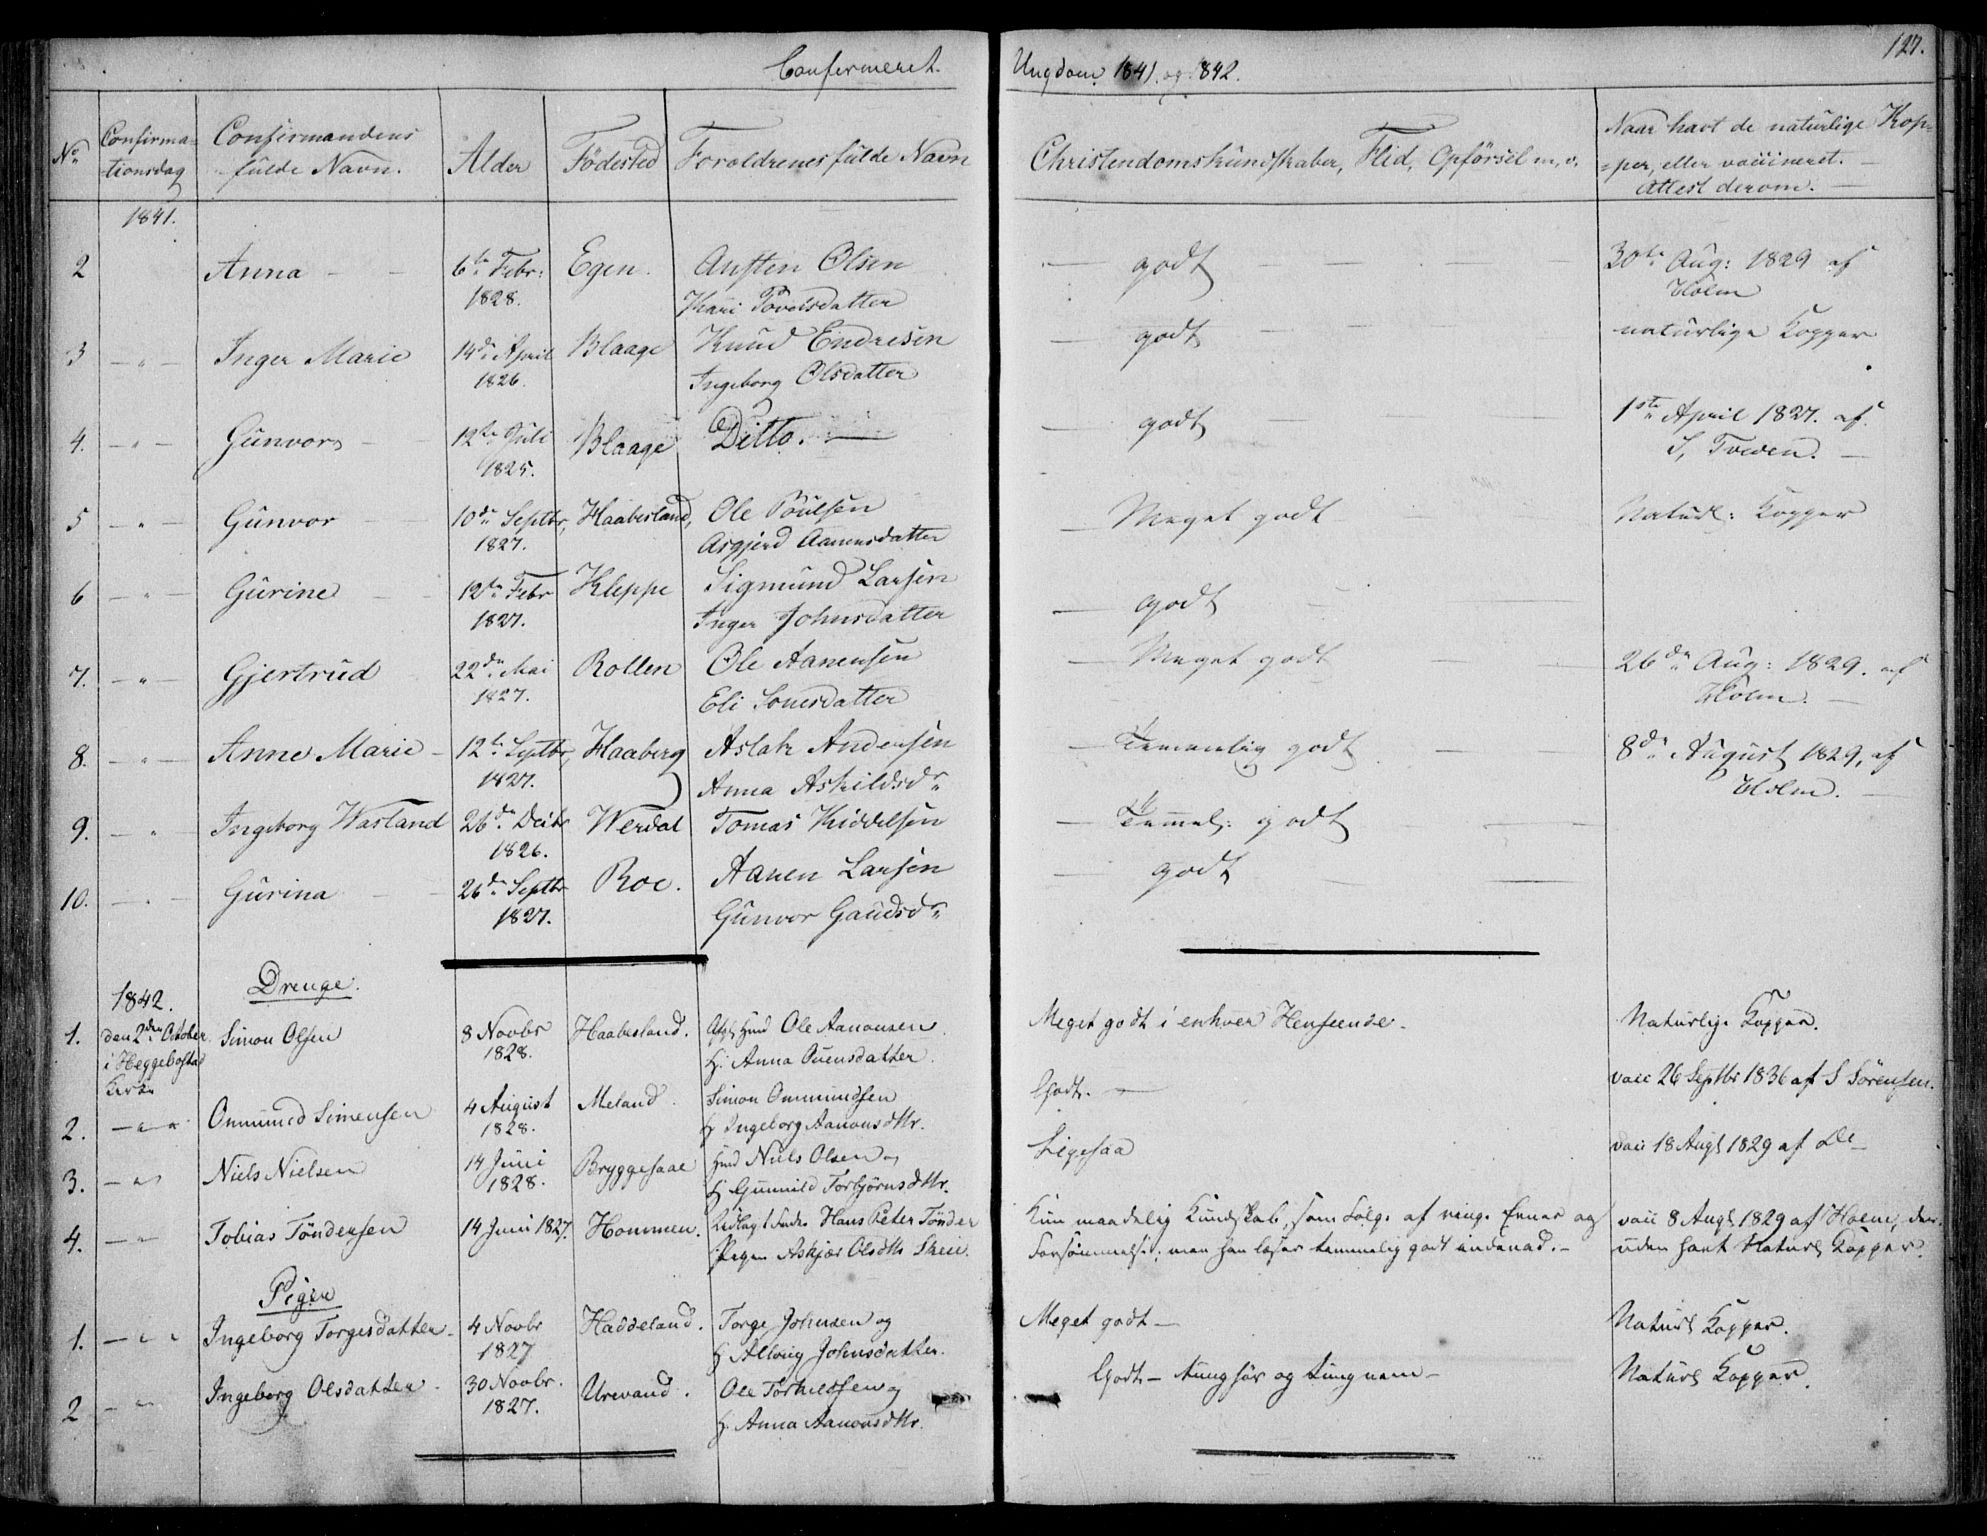 Confirmeret
Ungdom 1841. og 1842.
127.
No
Confirma-
tionsdag
Confirmandens
fulde Navn.
Alder
Födested
Foroldrenes fulde Navn
Christendomskundskaber, Flid, Opförsel m. v.
Naar havt de naturlige Kop-
-per, eller vaccineret.
Attest derom.
1841.
2 Anna 6te Febr: Egen. Austen Olsen godt 30te Aug: 1829 af
1828. Kari Povelsdatter Holm
3 - " - Inger Marie 14de April Blaage Knud Endresen godt naturlige Kopper
1826. Ingeborg Olsdatter
4. - " - Gunvor 12te Juli Blaage Ditto. godt 1ste April 1827. af
1825. S. Tveden.
5 - " - Gunvor 10de Septbr, Haabesland, Ole Poulsen Meget godt Naturl: Kopper
1827. Asgjerd Aanensdatter
6 - " - Gurine 12te Febr Kleppe Sigmund Larsen godt
1827. Inger Johnsdatter
7. - " - Gjertrud 22de Mai Rollen Ole Aanensen Meget godt 26de Aug: 1829. af
1827. Eli Sonesdatter Holm.
8. - " - Anne Marie 12te Septbr, Haaberg Aslak Andersen Temmelig godt 8de August 1829, af
1827. Anna Askildsdr Holm.
9. - " - Ingeborg Wasland 26de Decbr Werdal Tomas Kiddelsen Temmel: godt
1826.
10. - " - Gurina 26de Septbr Roe. Aanen Larsen godt
1827. Gunvor Gaudsdr
Drenge.
1842.
1. den 2den October Simon Olsen 8 Novbr Haabesland. Hmd Ole Aanonsen Meget godt i enhver Henseende. Naturlige Kopper.
i Heggebostad 1828. H. Anna Ouensdatter
Kirke
2. - " " Ommund Simensen 4 August Meland. Simon Ommundsen Godt. vacc 26 Septbr 1836 af S Sörensen.
1828. H Ingeborg Aanonsdttr.
3. - " Niels Nielsen 14 Juni Bryggesaae Hmd Niels Olsen og Ligesaa vacc 18 Augt 1829 af De
1828. H Gunnild Torbjörnsdttr.
4. - " Tobias Töndersen 14 Juni 1827. Hommen. Hans Peter Tönder Kun maadelig Kundskab, som Fölge af ringe Evner og vacc 8 Augt 1829 af Holm, des-
Pigen Askjer Olsdttr Skeie. Forsömmelse; men han læser temmelig godt indenad. uden havt Naturl Kopper.
Piger
1. - " " Ingeborg Torgesdatter 4 Novbr Haddeland. Torge Johnsen og Meget godt Naturl Kopper.
1827 H Allvig Johnsdatter.
2 - " Ingeborg Olsdatter 30 Novbr. Urevand. Ole Torkelsen og Godt - tunghör og tungnem - Naturl Kopper.
1827. H. Anna Aanonsdttr.